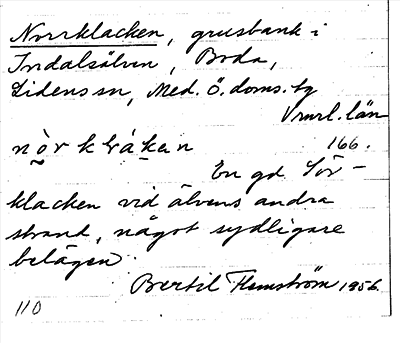 Norrklacken, grusbank i
Indalsälven, Boda,
Lidens sn, Med. Ö. doms. tg
Vnrl. län
nòrklákan 166.
En gd Sör-
klacken vid älvens andra
strand, något sydligare
belägen.
Bertil Flemström 1956.
110